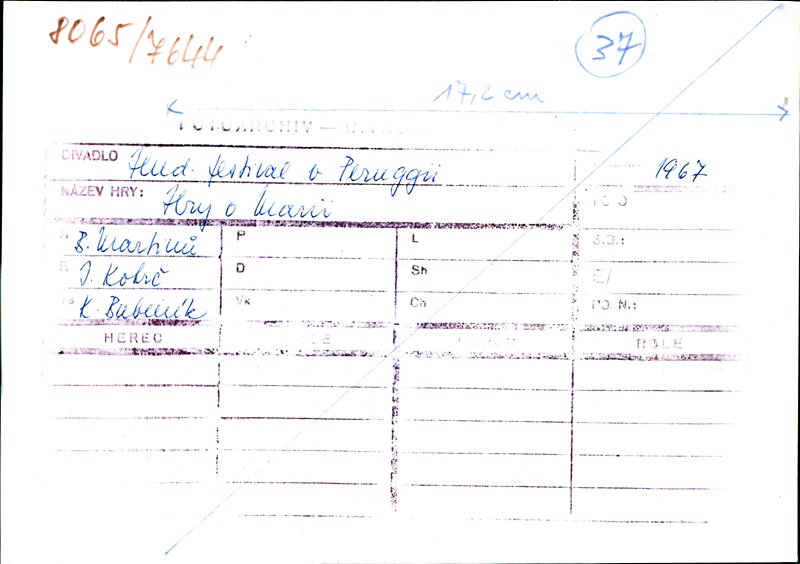 8065/7644
37
17,2 cm
FOTOARCHIV —
DIVADLO Hud. festival v Peruggii 1967
NÁZEV HRY: Hry o Marii
A B. Martinů P L S.B.:
R J. Kobrč D Sh E/
Vs K. Bubeník Vk Ch PO.N.:
HEREC ROLE HEREC ROLE